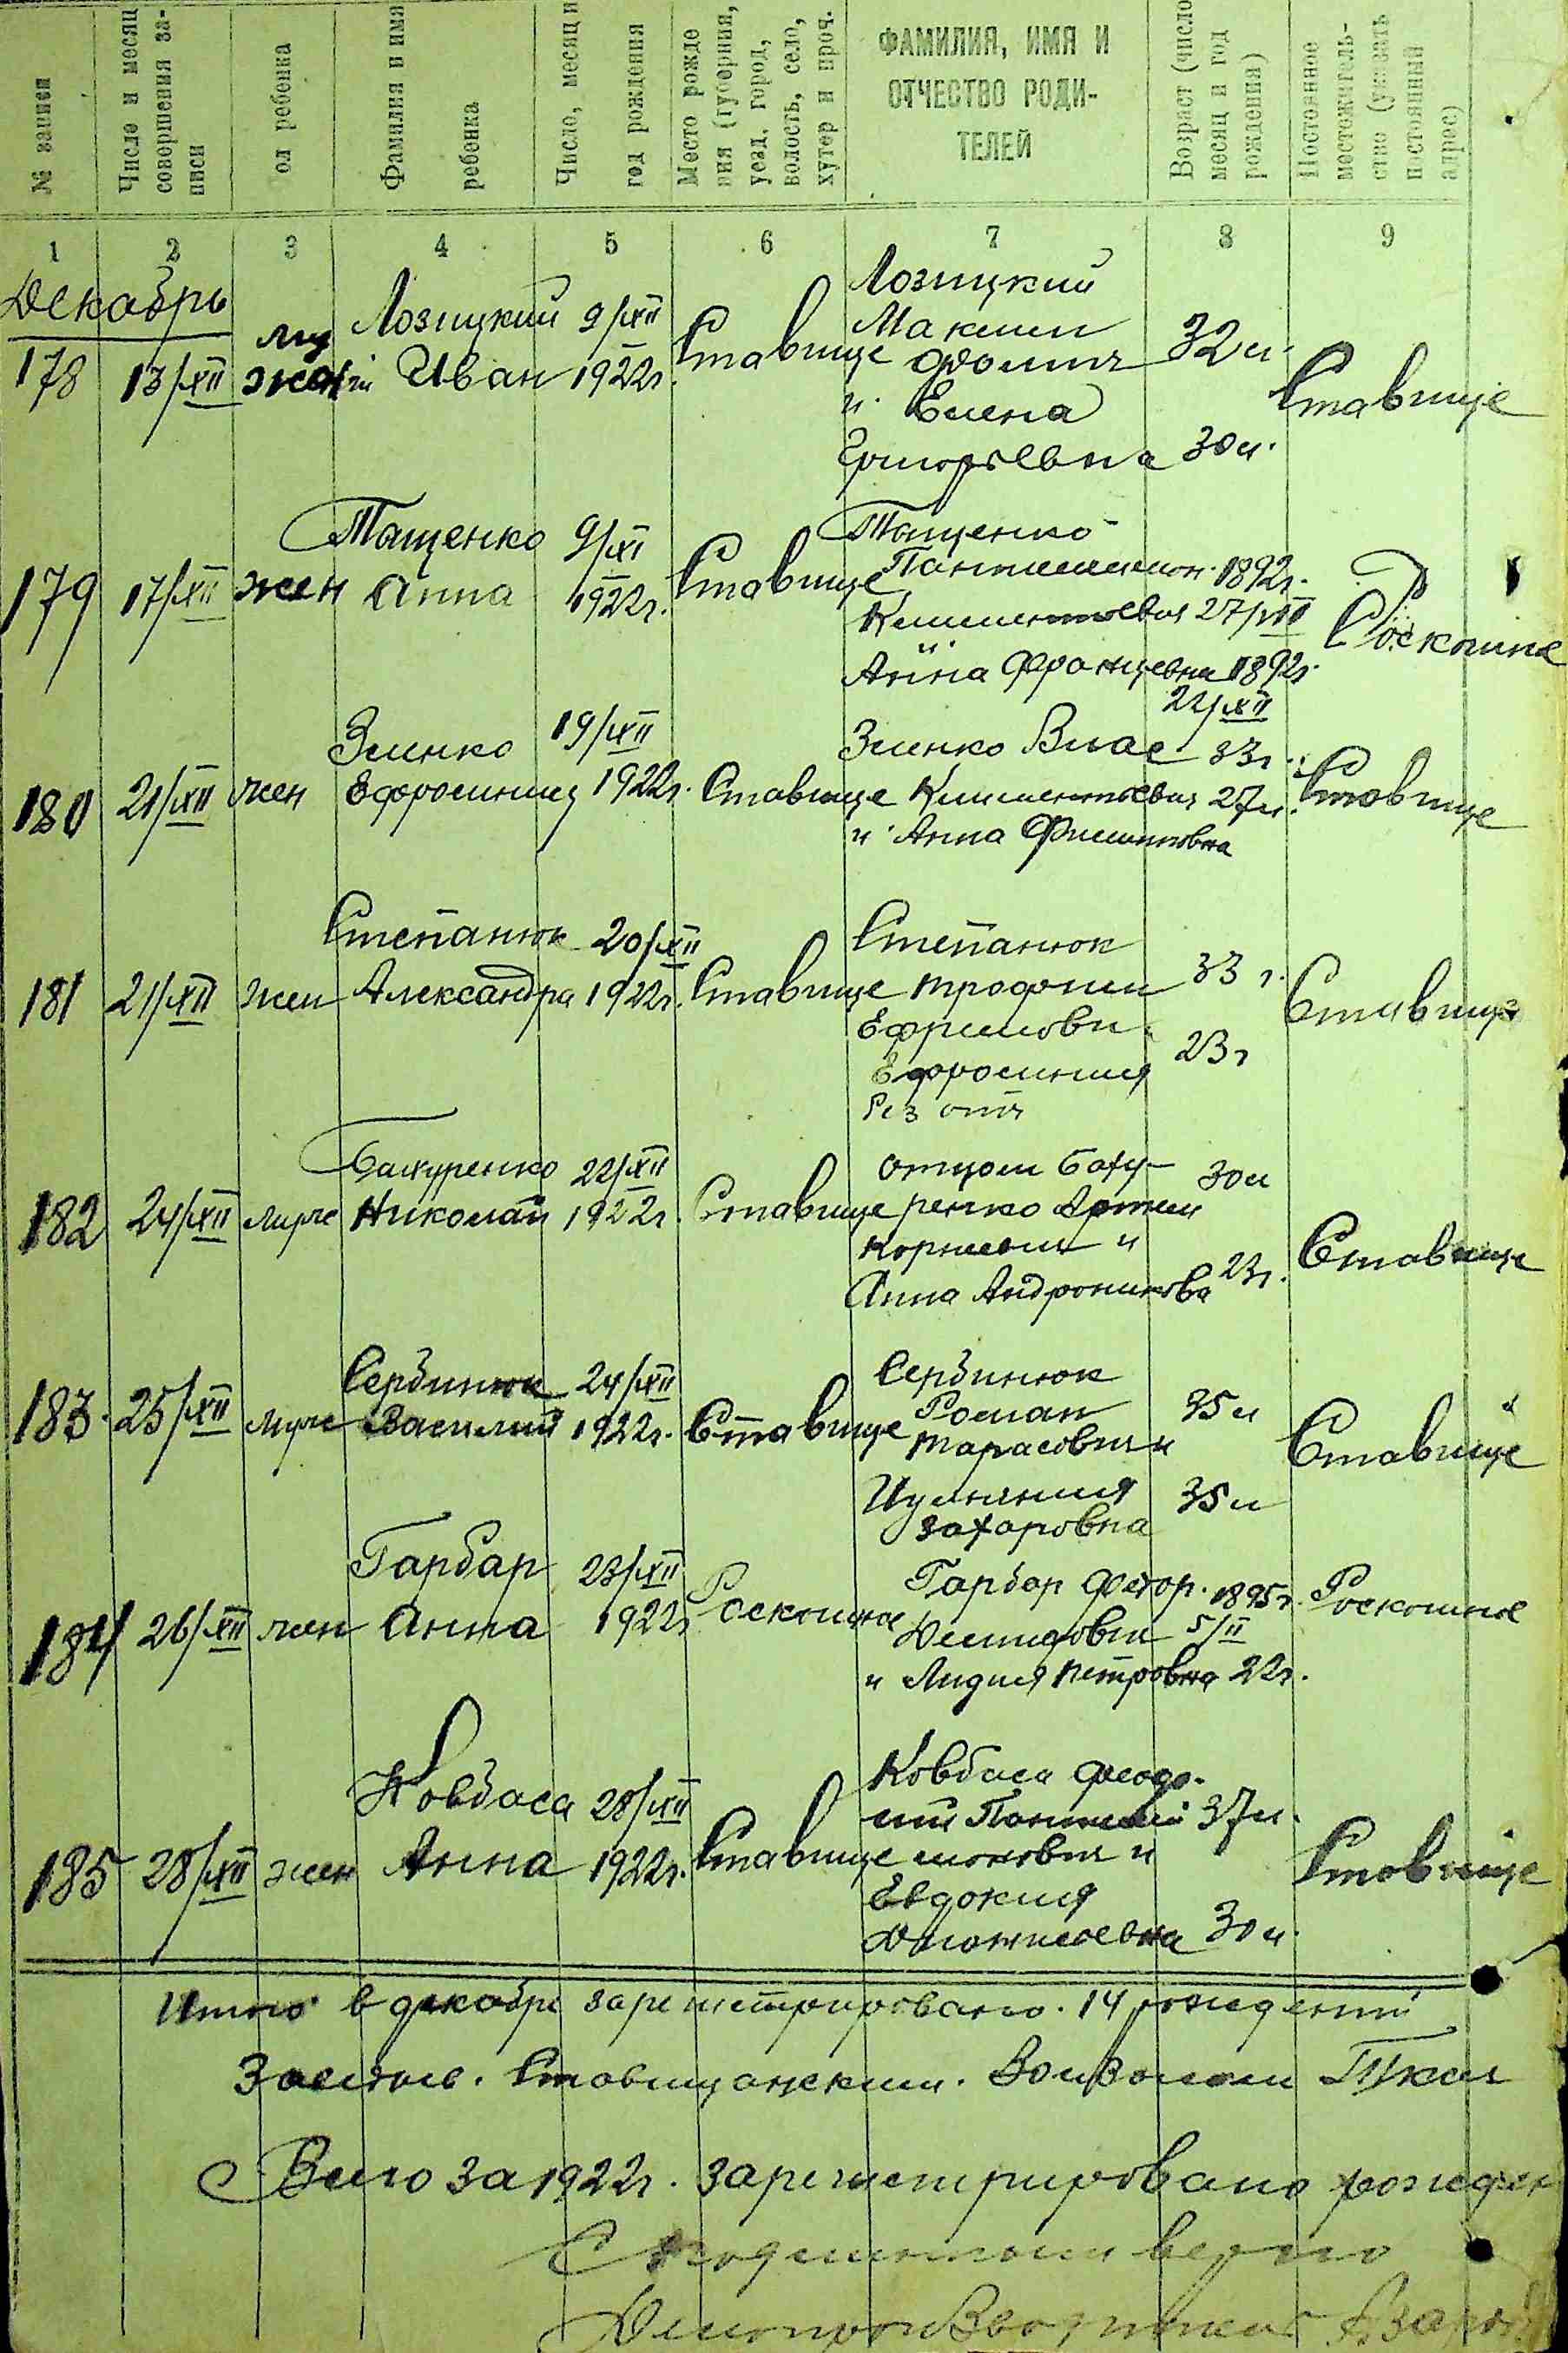 № записи
Число и месяц совершения записи
ол ребенка
Фамилия и имя ребенка
Число, месяц и год рождения
Место рожде
ния (губерния,
уезд, город,
волость, село,
хутер и проч.
ФАМИЛИЯ, ИМЯ И
ОТЧЕСТВО РОДИ-
ТЕЛЕЙ
Возраст (число
месяц и год
рождения)
Постоянное
местожитель-
ство (указать
постоянный
адрес)
1 2 3 4 5 6 7 8 9
Декабрь
178 13/XII муж
Лозицкий 9/XII
Иван 1922г.
Ставище
Лозицкий
Максим
Фомич 32л.
и Елена
Григорьевна 30л.
Ставище
179 17/XII жен
Тащенко 9/XI
Анна 1922г.
Ставище
Тащенко
Пантелеимон 1892г.
Климентьевич 27/VIII
и
Анна Францевна 1892г.
22/XII
Роскошна
180 21/XII жен
Зинко 19/XII
Ефросиния 1922г.
Ставище
Зинко Влас 33г.
Климентьевич 27л.
и Анна Филиповна
Ставище
181 21/XII жен
Степанюк 20/XII
Александра 1922г.
Ставище
Степанюк
Трофим 33 г.
Ефимови
Ефросиния 23г
Ставище
182 24/XII муж
Бахуренко 22/XII
Николай 1922г.
Ставище
отцом Баху- 30л
ренко Артем
Корнеевич и
Анна Андроникова 23г.
Ставище
183. 25/XII муж
Сербинюк 24/XII
Василий 1922г.
Ставище
Сербинюк
Роман 35л
Тарасович и
Иулиания 35л
Захаровна
Ставище
184 26/XII жен
Гарбар 23/XII
Анна 1922г
Роскошна
Гарбар Федор. 1895г.
Демидович 5/II
и Лидия Петровна 22г.
Роскошна
185 28/XII жен
Ковбаса 28/XII
Анна 1922г.
Ставище
Ковбаса Феодо-
сий Пантелей 37л.
монович и
Евдокия
30л.
Ставище
Итого в декабре зарегистрировано 14 рождений
Ставищанским
Всего за 1922г. зарегистрировано рожден
С подлинным верно